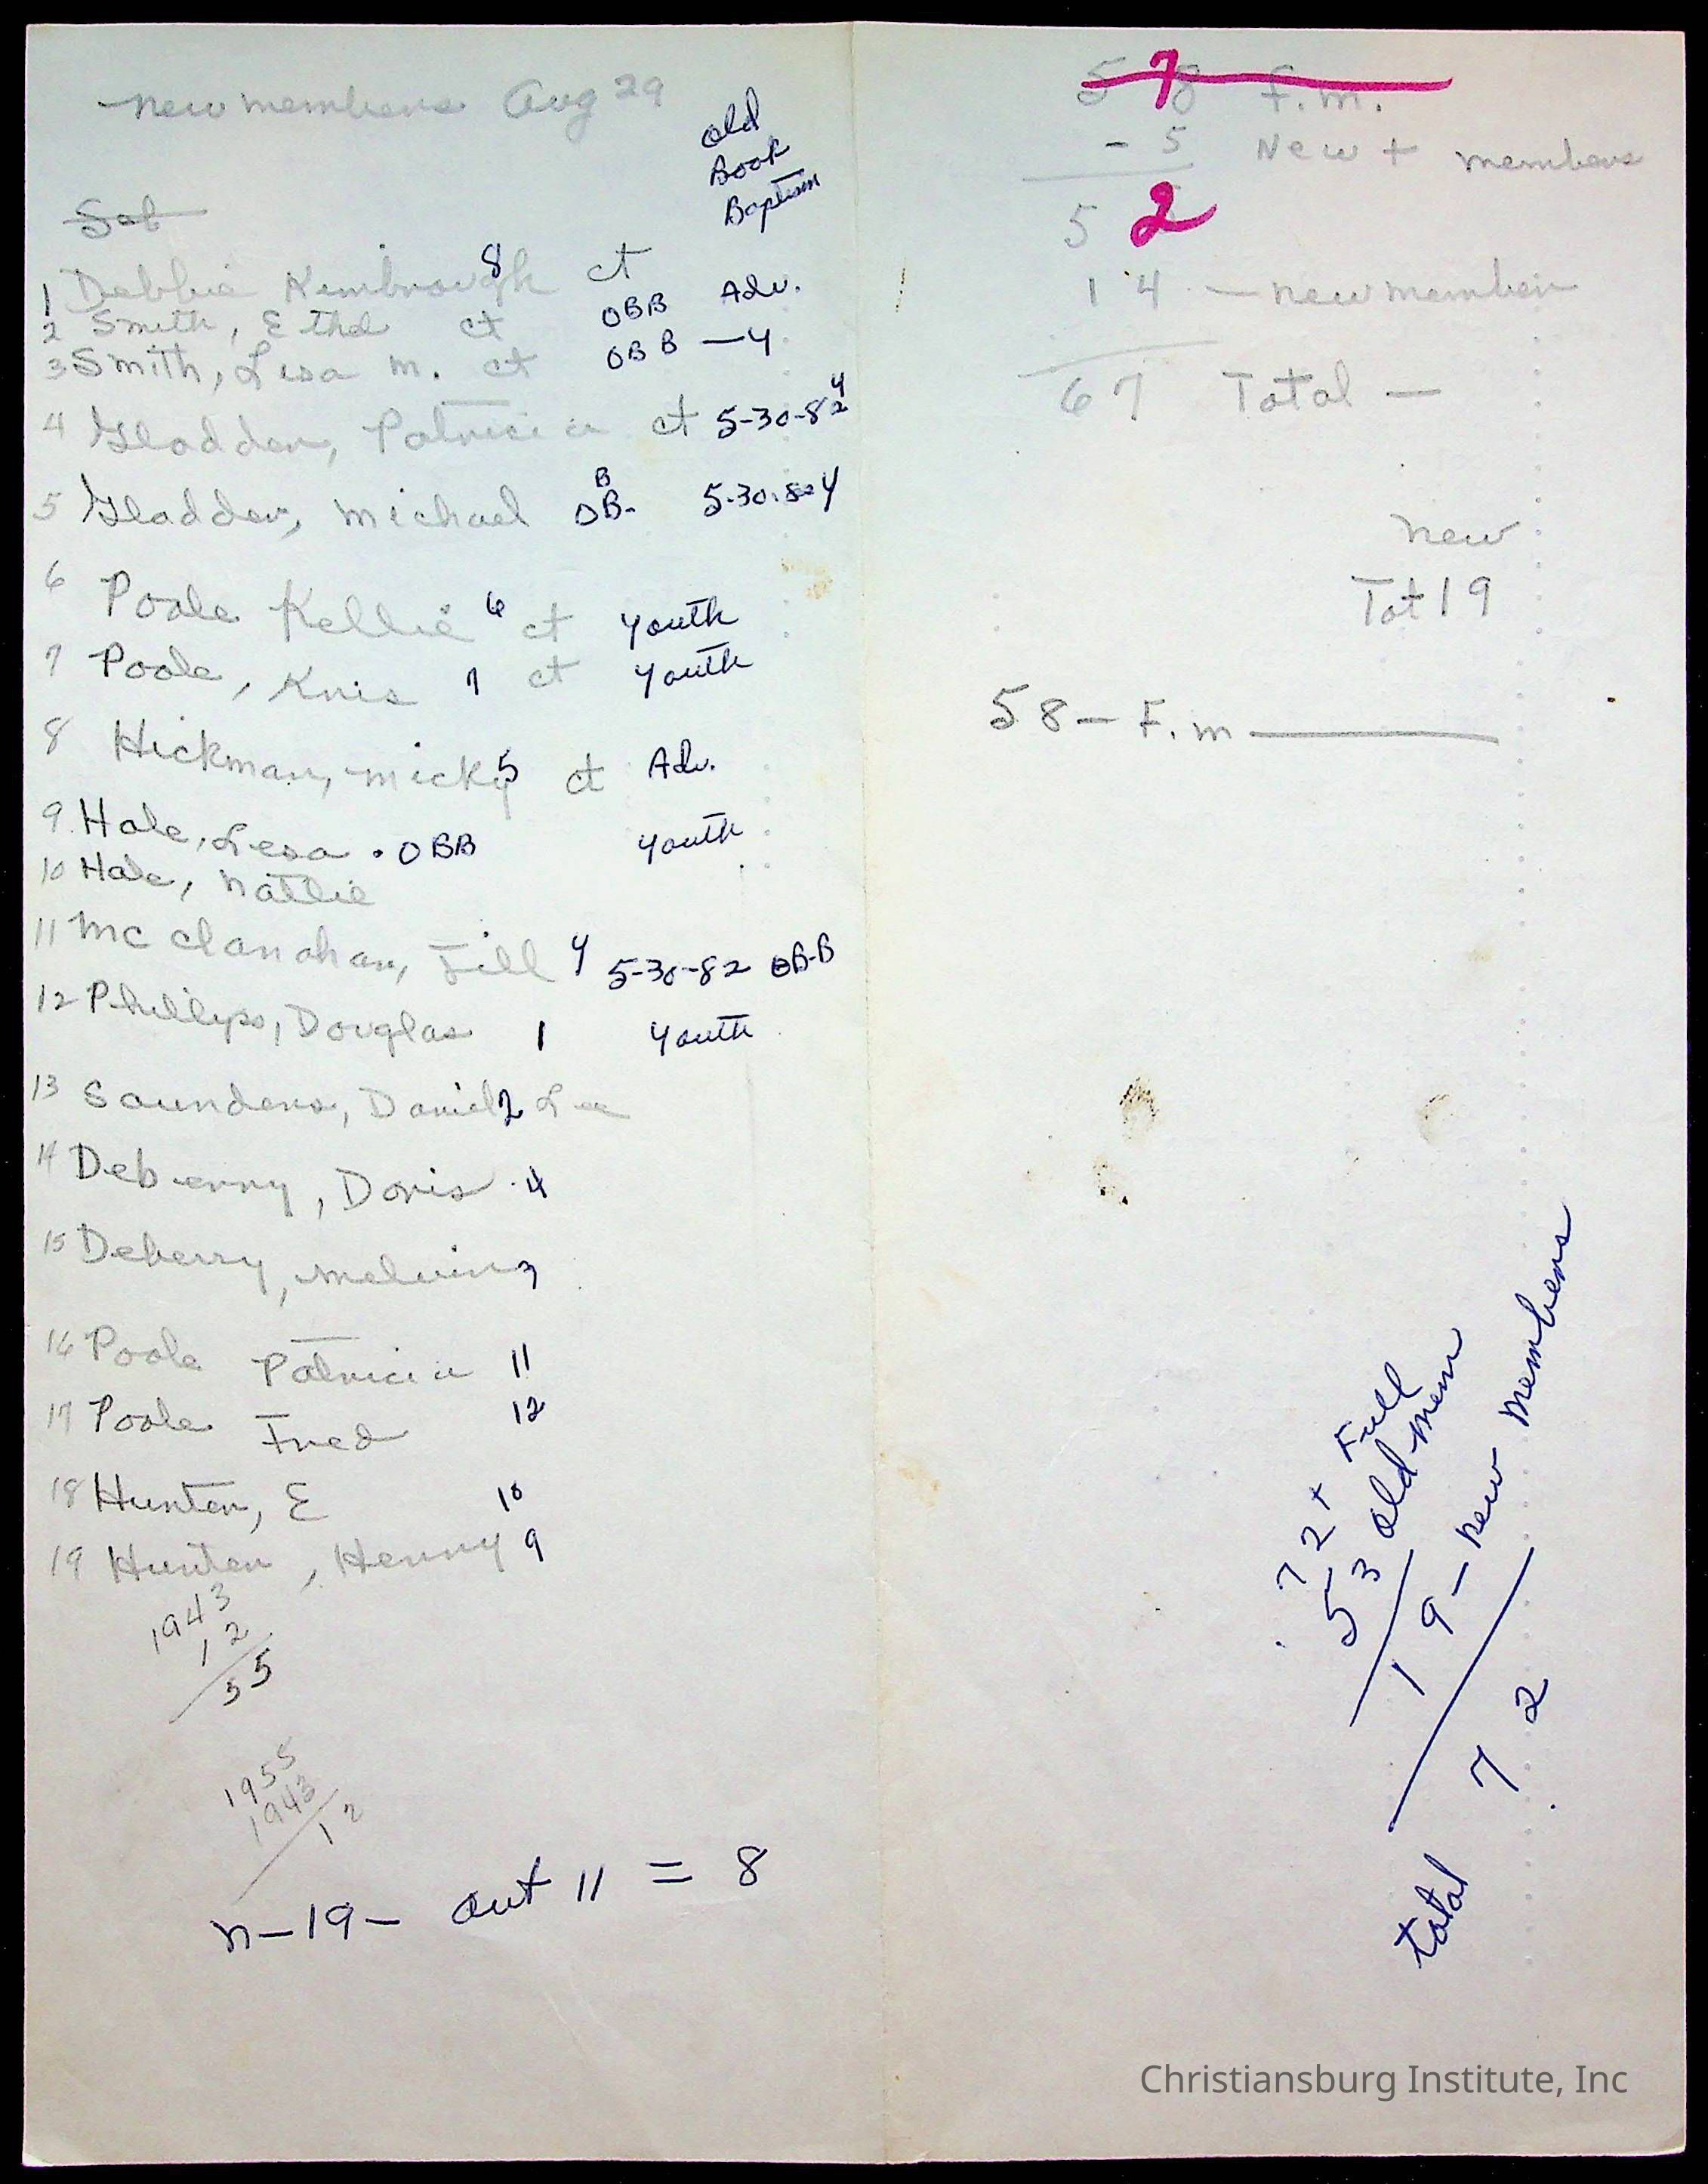 new members Aug 29
old
Book
Baptism
Sab
1 Debbie Kimbrough 8 ct
2 Smith, Ethel ct OBB Adv.
3 Smith, Lisa M. ct OBB — y
4 Gladden, Patricia ct 5-30-82 y
5 Gladden, Michael OBB 5-30-82 y
6 Poole Kellie 6 ct Youth
7 Poole, Kris 7 ct Youth
8 Hickman, Micky 5 ct Adv.
9. Hale, Lesa . OBB Youth
10 Hale, Nattie
11 McClanahan, Jill y 5-30-82 OB-B
12 Phillips, Douglas 1 Youth
13 Saunders, Daniel 2 Lee
14 Deberry, Doris . 4
15 Deberry, Melvin 3
16 Poole Patricia 11
17 Poole Fred 12
18 Hunter, E 10
19 Hunter, Henry 9
1943
12
55
1955
1943
12
n-19- out 11 = 8
578 F.M.
- 5 New + members
52
14 — new member
67 Total —
new
Tot 19
58 - F.M
72 + Full
53 old mem
19 - new members
total 72
Christiansburg Institute, Inc